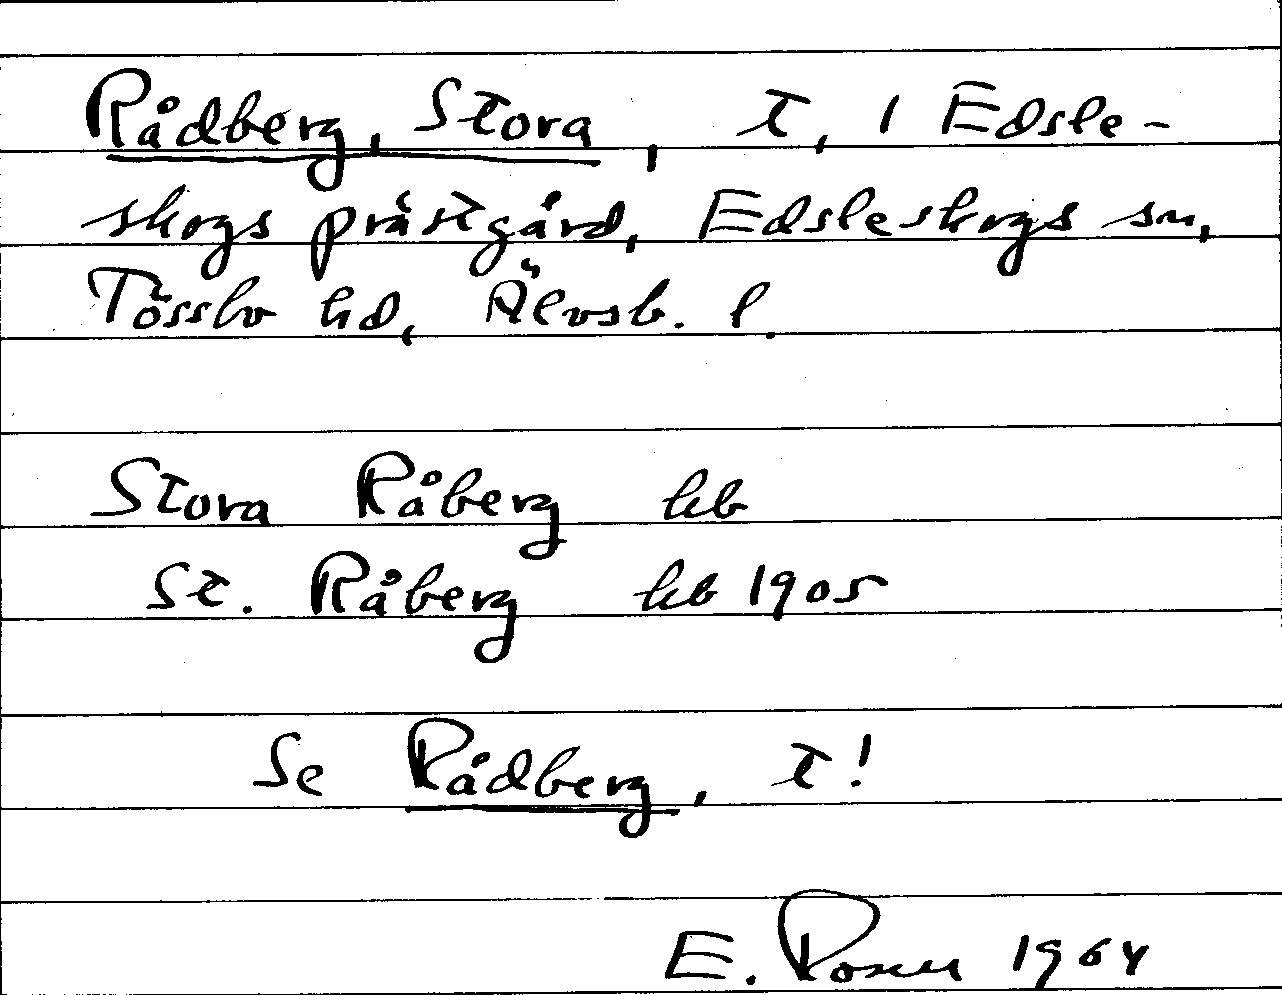 Rådberg, Stora, t, i Edsle-
skogs prästgård, Edsleskogs sn,
Tössbo hd, Älvsb. l.
Stora Råberg hb
St. Råberg hb 1905
Se Rådberg, t!
E. Rosen 1964